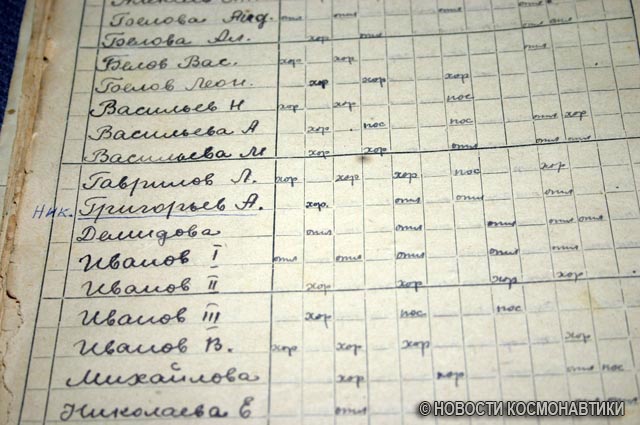 Белова Ал. хор отл
Белов Вас. хор хор
Белов Леон. хор хор хор
Васильев Н хор хор пос
Васильева А хор пос пос отл хор
Васильева М хор хор отл
Гаврилов Л. хор хор хор пос хор
Ник. Григорьев А. хор. отл отл отл
Демидова отл отл отл отл отл
Иванов I отл отл отл отл отл
Иванов II хор хор хор хор
Иванов III хор пос пос
Иванов В. хор хор хор хор
Михайлова хор хор отл пос
Николаева Е отл отл отл
© НОВОСТИ КОСМОНАВТИКИ